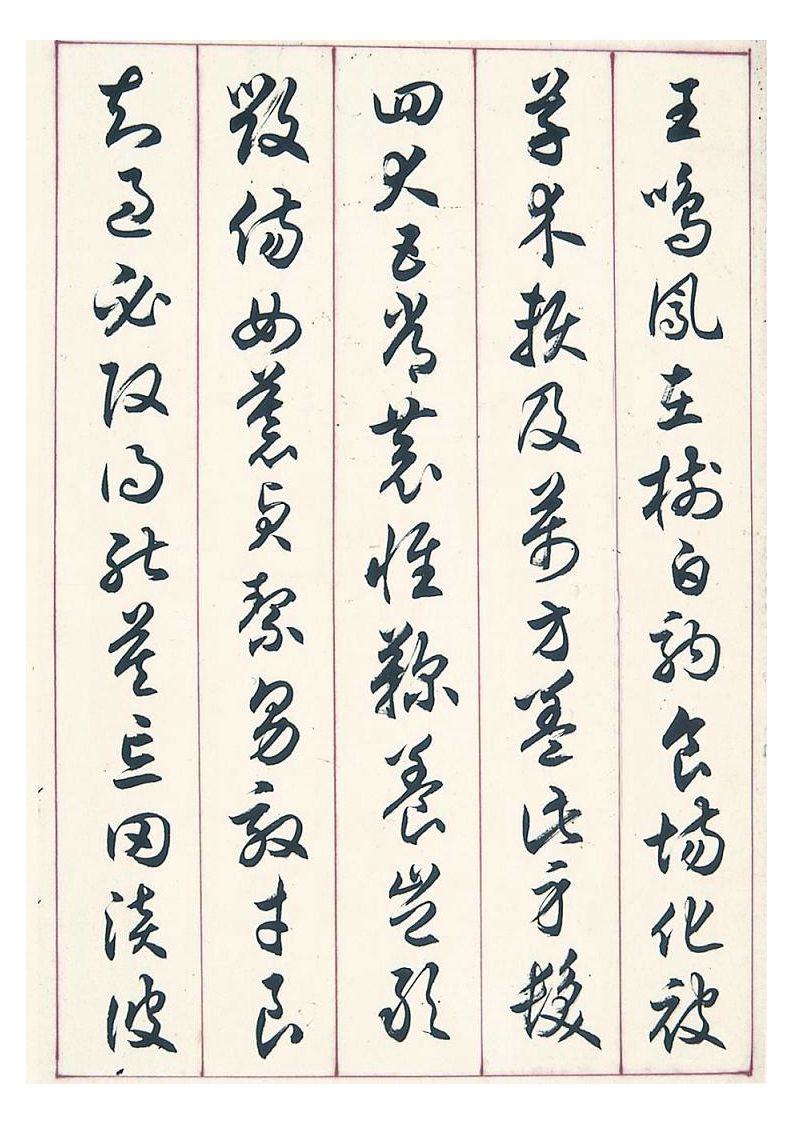 王鳴鳳在樹白駒食場化被
草木賴及萬方蓋此身髮
四大五常恭惟鞠養豈敢
毀傷女慕貞絜男效才良
知過必改得能莫忘罔談彼